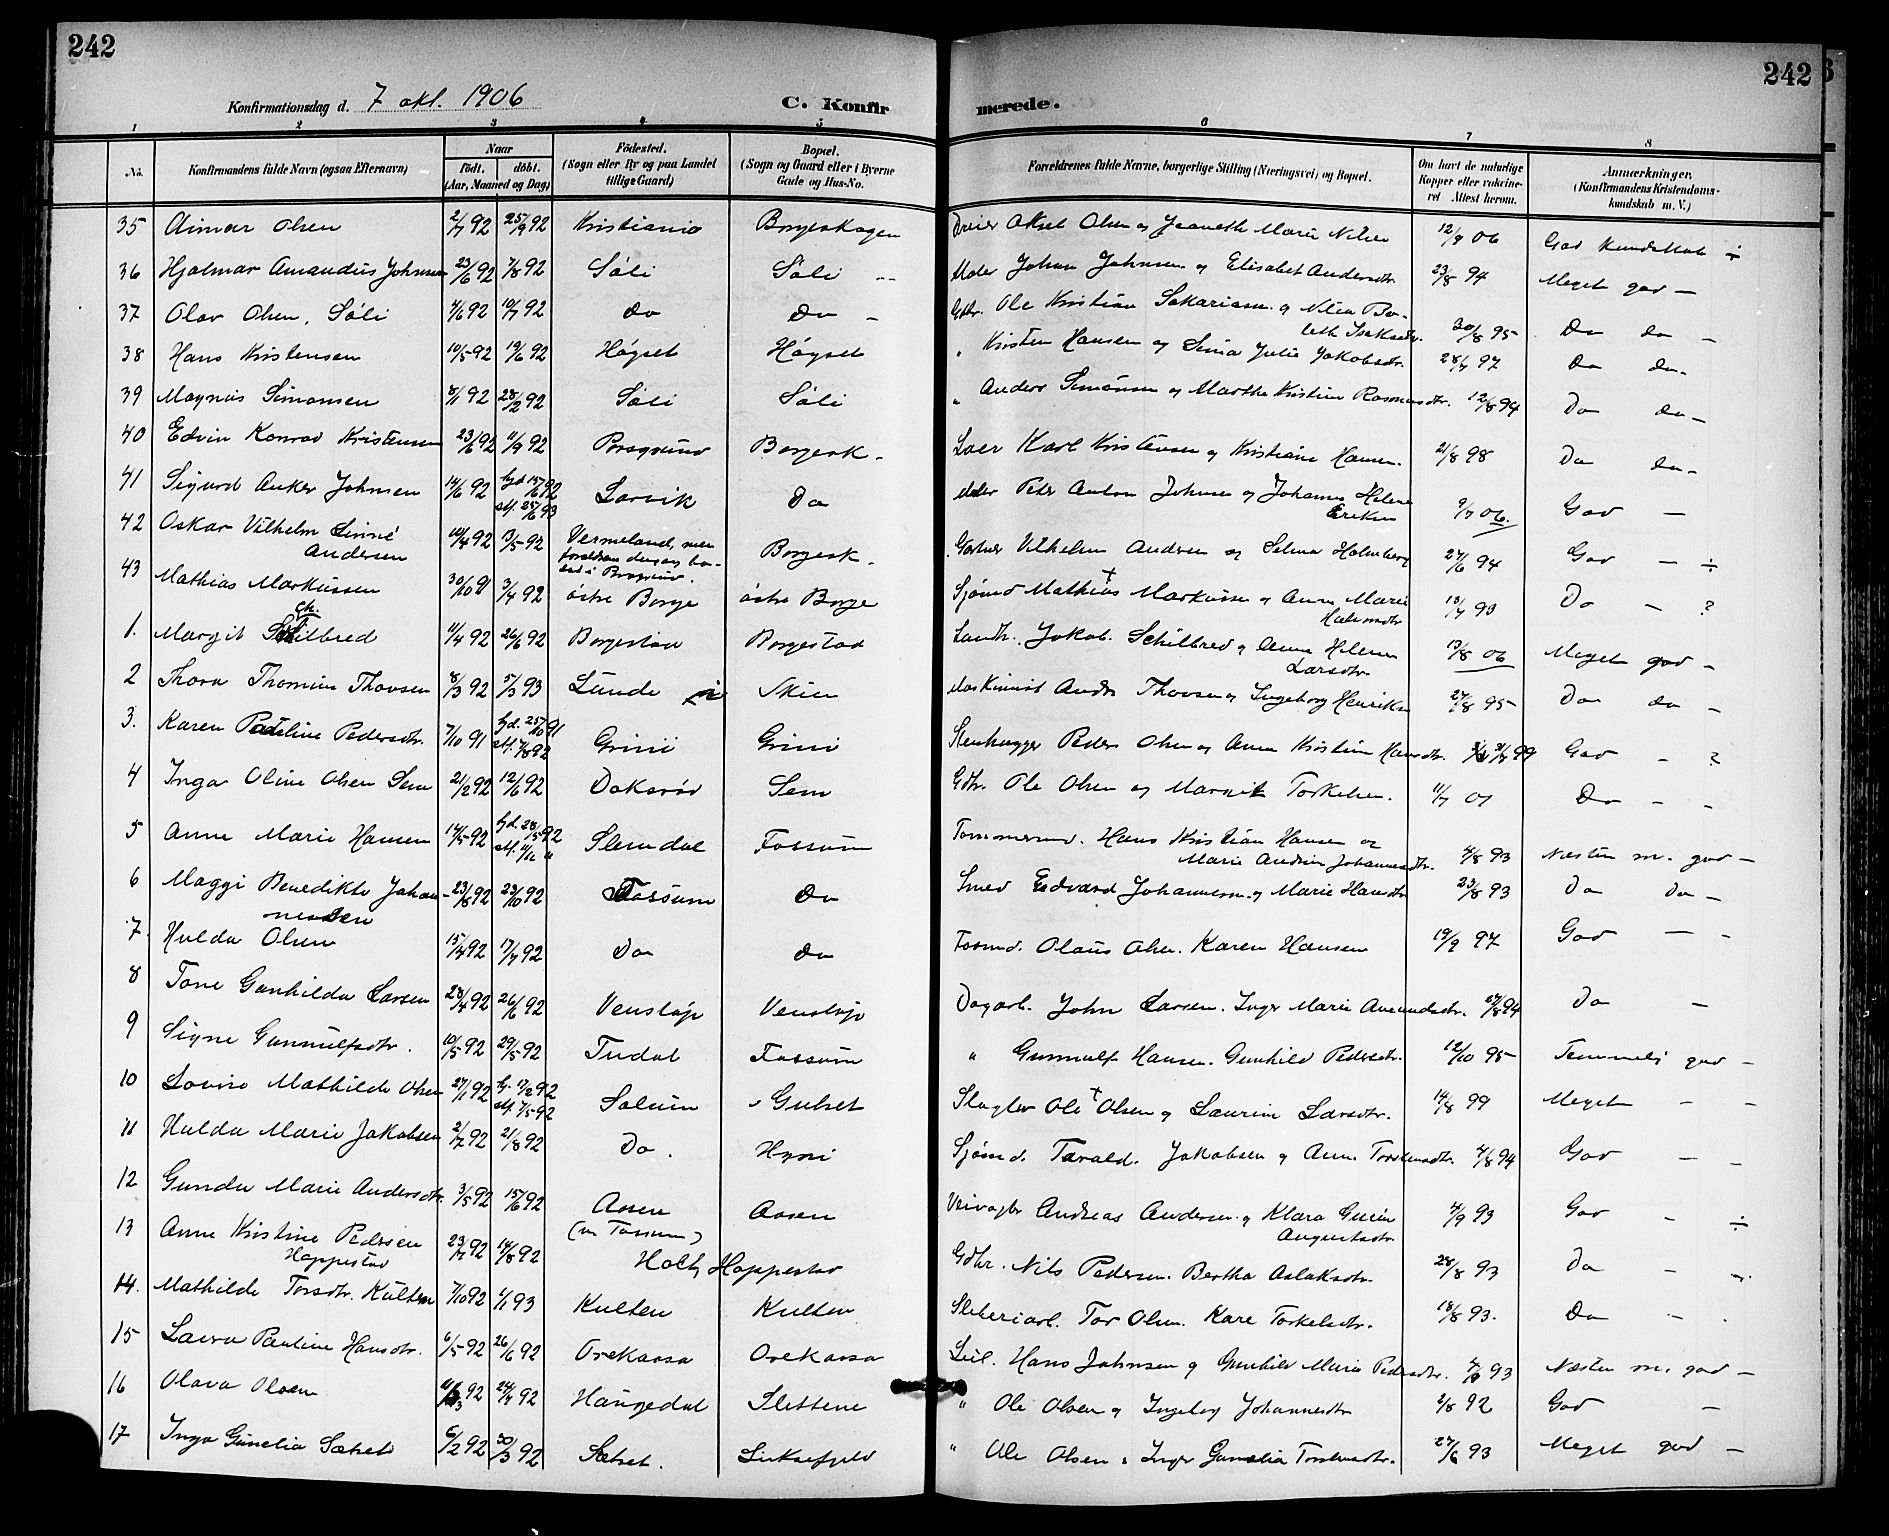 242
242
Konfirmationsdag d. 7 okt. 1906
C. Konfirmerede.
1 2 3 4 5 6 7 8
No. Konfirmandens fulde Navn (ogsaa Efternavn) Naar født. døbt. (Aar, Maaned og Dag) Fødested. (Sogn eller By og paa Landet tillige Gaard) Bopæl. (Sogn og Gaard eller i Byerne Gade og Hus-No. Forældrenes fulde Navne, borgerlige Stilling (Næringsvei) og Bopæl. Om havt de naturlige Kopper eller vakcineret Attest herom. Anmærkninger. (Konfirmandens Kristendomskundskab m. V.)
35 Aimar Olsen 2/7 92 25/9 92 Kristiania Borgeskogen Aksel Olsen og Jeanette Marie Nilsen 12/9 06 God kundskab ÷
36 Hjalmar Amandus Johnsen 23/6 92 7/8 92 Søli Søli Johan Johnsen og Elisabet Andersdtr. 23/8 94 Meget god —
37 Olav Olsen, Søli 4/6 92 10/7 92 Do Do — Gbr. Ole Kristian Sakariassen og
Isaksdtr. 30/8 95 Do do —
38 Hans Kristensen 10/5 92 19/6 92 Høgset Høgset " Kristen Hansen og Julie Jakobsdtr. 28/7 97 Do do
39 Magnus Simonsen 8/1 92 28/2 92 Søli Søli " Anders Simonsen og Marthe Kristine Rasmusdtr. 12/8 94 Do do —
40 Edvin Konrad Kristensen 23/6 92 11/9 92 Porsgrund Borgesk. Karl Kristensen og Kristiane Hansen. 21/8 98 Do do —
41 Sigurd Anker Johnsen 14/6 92 hjd 19/6 92
stf. 25/6 93 Larvik Do Peter Anton Johnsen og Johanne Helene
Eriksen 9/7 06. God —
42 Oskar Vilhelm Linné
Andersen 10/4 92 13/5 92 Vermeland, men
forældrene dengang bo-
sat i Porsgrund. Borgesk. Gartner Vilhelm Andersen og Selma Holmberg 27/6 94 God — ÷
43 Mathias Markussen 30/10 91 3/4 92 østre Borge østre Borge Sjømd Mathias † Markussen og Anne Marie
13/7 93 Do — ?
1. Margit Schilbred 11/4 92 26/6 92 Borgestad Borgestad Landh. Jakob Schilbred og Anne Helene
Larsdtr. 13/8 06 Meget god —
2 Thora Thomine Thovsen 8/3 92 5/3 93 Lunde Skien Maskinist Andr. Thovsen og Ingeborg Henriksen 27/8 95 Do do —
3. Karen Pauline Pedersdtr. 7/10 91 hjd. 25/10 91
stf. 7/8 92 Grini Grini Stenhugger Peder Olsen og Anne Kristine Hansdtr. 99 God — ?
4 Inga Oline Olsen Sem 21/2 92 12/6 92 Dokerød Sem Gbr. Ole Olsen og Margit Torkelsen. 11/7 01 Do — —
5 Anne Marie Hansen 14/5 92 hjd. 28/5 92
stf. 4/12 " Slemdal Fossum Tømmermd. Hans Kristian Hansen og
Marie Andrine Johannesdtr. 4/8 93 Næsten m. god —
6 Maggi Benedikte Johan-
nessen 23/8 92 23/10 92 Fossum Do Smed Edvard Johannessen og Marie Hansdtr. 23/8 93 Do Do —
7. Hulda Olsen 15/4 92 17/7 92 Do Do Fosmd. Olaus Olsen. Karen Hansen 19/9 97 God — —
8 Tone Gunhilda Larsen 28/4 92 26/6 92 Venstøp Venstøp Dagarb. John Larsen. Inger Marie Amundsdtr. 27/8 94 Do —
9 Signe Gunnulfsdtr. 10/5 92 29/5 92 Tudal Fossum " Gunnulf Hansen. Gunhild Pedersdtr. 12/10 95 Temmelig god —
10 Lovise Mathilde Olsen 27/1 92 hj. 17/2 92
stf. 7/5 92 Solum Gulset Slagter Ole † Olsen og Laurine Larsdtr. 14/8 99 Meget — —
11 Hulda Marie Jakobsen 2/7 92 21/8 92 Do. Hyni Sjømd. Tarald. Jakobsen og Anne Torstensdtr. 4/8 94 God — —
12 Gunda Marie Andersdtr. 3/5 92 15/6 92 Aasen
(v. Fossum) Aasen Veivogter Andreas Andersen og Klara Gurine
Augustsdtr. 4/9 93 God — ÷
13 Anne Kristine Pedersen
Hoppestad 23/7 92 14/8 92 Holt, Hoppestad Gbr. Nils Pedersen. Bertha Aslaksdtr. 28/8 93 Do —
14. Mathilde Torsdtr. Kulten 7/10 92 1/1 93 Kulten Kulten Sliberiarb. Tor Olsen. Kare Torkelsdtr. 18/8 93. Do —
15 Laura Pauline Hansdtr. 6/5 92 26/6 92 Orekaasa Orekaasa Leil. Hans Johnsen og Gunhild Marie Pedersdtr. 93 Næsten m. god —
16 Olava Olsen 92 24/4 92 Haugedal Slettene " Ole Olsen og Ingeborg Johannesdtr 2/8 92 God —
17 Inga Gunelia Sætret 6/2 92 20/3 92 Sætret. Luksefjeld " Ole Olsen. Inger Gunelia Torstensdtr. 27/6 93 Meget god —